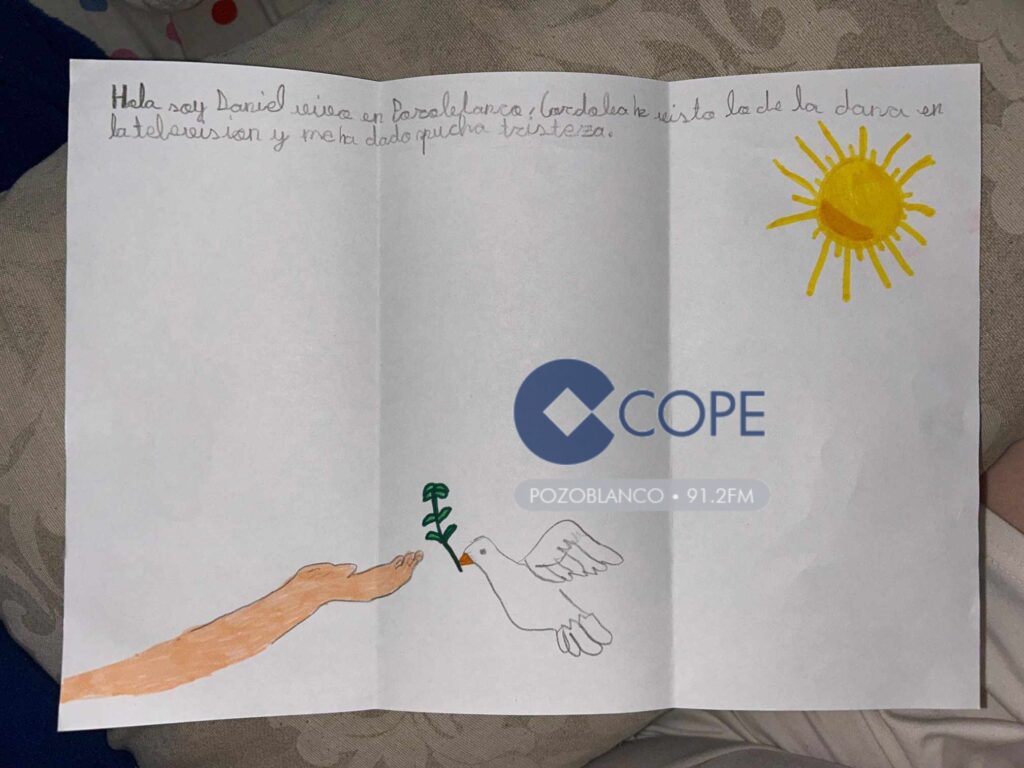 Hola soy Daniel vivo en Pozoblanco, Cordoba he visto lo de la dana en
la television y me ha dado mucha tristeza.
COPE
POZOBLANCO • 91.2FM